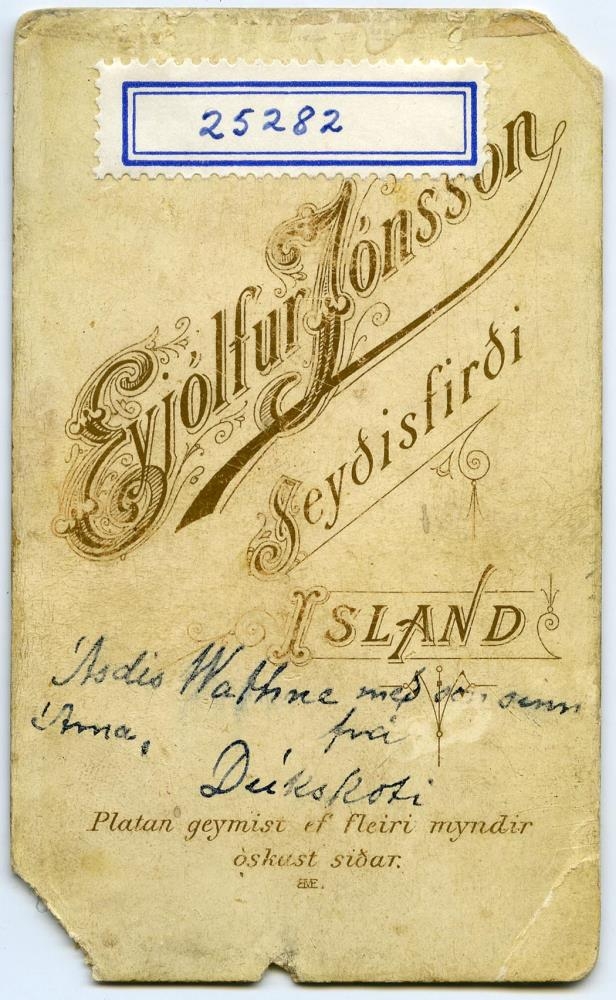 25282
Eyjólfur Jónsson
Seyðisfirði
ÍSLAND
Ásdís Wathne með son sinn
Árna, frá
Dúkskoti
Platan geymist ef fleiri myndir
óskast síðar.